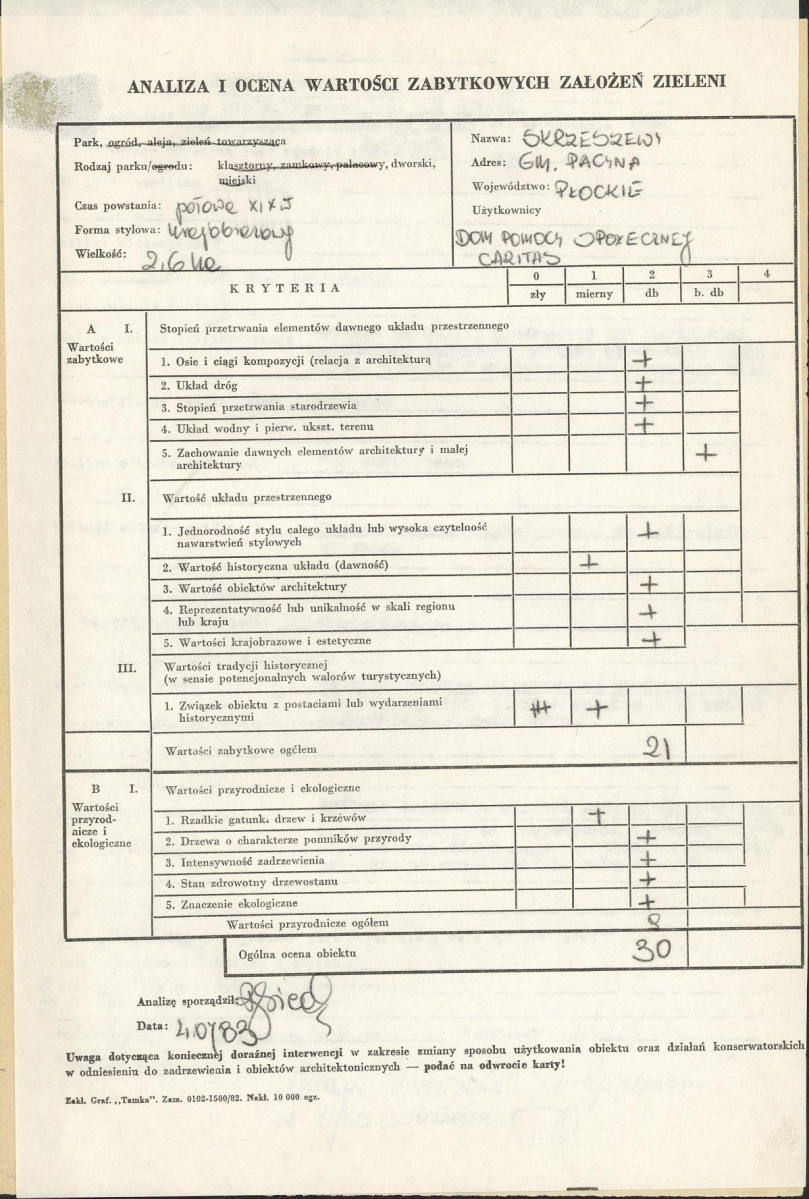 ANALIZA I OCENA WARTOŚCI ZABYTKOWYCH ZAŁOŻEŃ ZIELENI
Park, ogród, aleja, zieleń towarzysząca
Rodzaj parku/ogrodu: klasztorny, zamkowy, pałacowy, dworski,
miejski
Czas powstania: połowa XIX w
Forma stylowa: krajobrazowy
Wielkość: 2,6 ha
Nazwa: SKRZESZEWY
Adres: GM. PACYNA
Województwo: PŁOCKIE
Użytkownicy
DOM POMOCY SPOŁECZNEJ
CARITAS
KRYTERIA
0 1 2 3 4
zły mierny db b. db
A I. Stopień przetrwania elementów dawnego układu przestrzennego
Wartości
zabytkowe
1. Osie i ciągi kompozycji (relacja z architekturą +
2. Układ dróg +
3. Stopień przetrwania starodrzewia +
4. Układ wodny i pierw. ukszt. terenu +
5. Zachowanie dawnych elementów architektury i małej
architektury +
II. Wartość układu przestrzennego
1. Jednorodność stylu całego układu lub wysoka czytelność
nawarstwień stylowych +
2. Wartość historyczna układu (dawność) +
3. Wartość obiektów architektury +
4. Reprezentatywność lub unikalność w skali regionu
lub kraju +
5. Wartości krajobrazowe i estetyczne +
III. Wartości tradycji historycznej
(w sensie potencjonalnych walorów turystycznych)
1. Związek obiektu z postaciami lub wydarzeniami
historycznymi +
Wartości zabytkowe ogółem 21
B I. Wartości przyrodnicze i ekologiczne
Wartości
przyrod-
nicze i
ekologiczne
1. Rzadkie gatunki drzew i krzewów +
2. Drzewa o charakterze pomników przyrody +
3. Intensywność zadrzewienia +
4. Stan zdrowotny drzewostanu +
5. Znaczenie ekologiczne +
Wartości przyrodnicze ogółem
Ogólna ocena obiektu 30
Analizę sporządził:
Data:
Uwaga dotycząca koniecznej doraźnej interwencji w zakresie zmiany sposobu użytkowania obiektu oraz działań konserwatorskich
w odniesieniu do zadrzewienia i obiektów architektonicznych — podać na odwrocie karty!
Zakł. Graf. „Tamka". Zam. 0102-1500/82. Nakł. 10 000 egz.